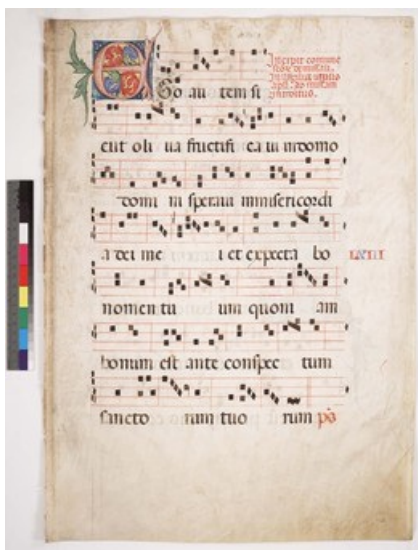 Incipit comune
E go au tem si
cut oli ua fructifi ca ui in domo
domi ni speraui in misericordi
a dei me i et expecta bo
LXIII
nomen tu um quoni am
bonum est ante conspec tum
sancto rum tuo rum pō